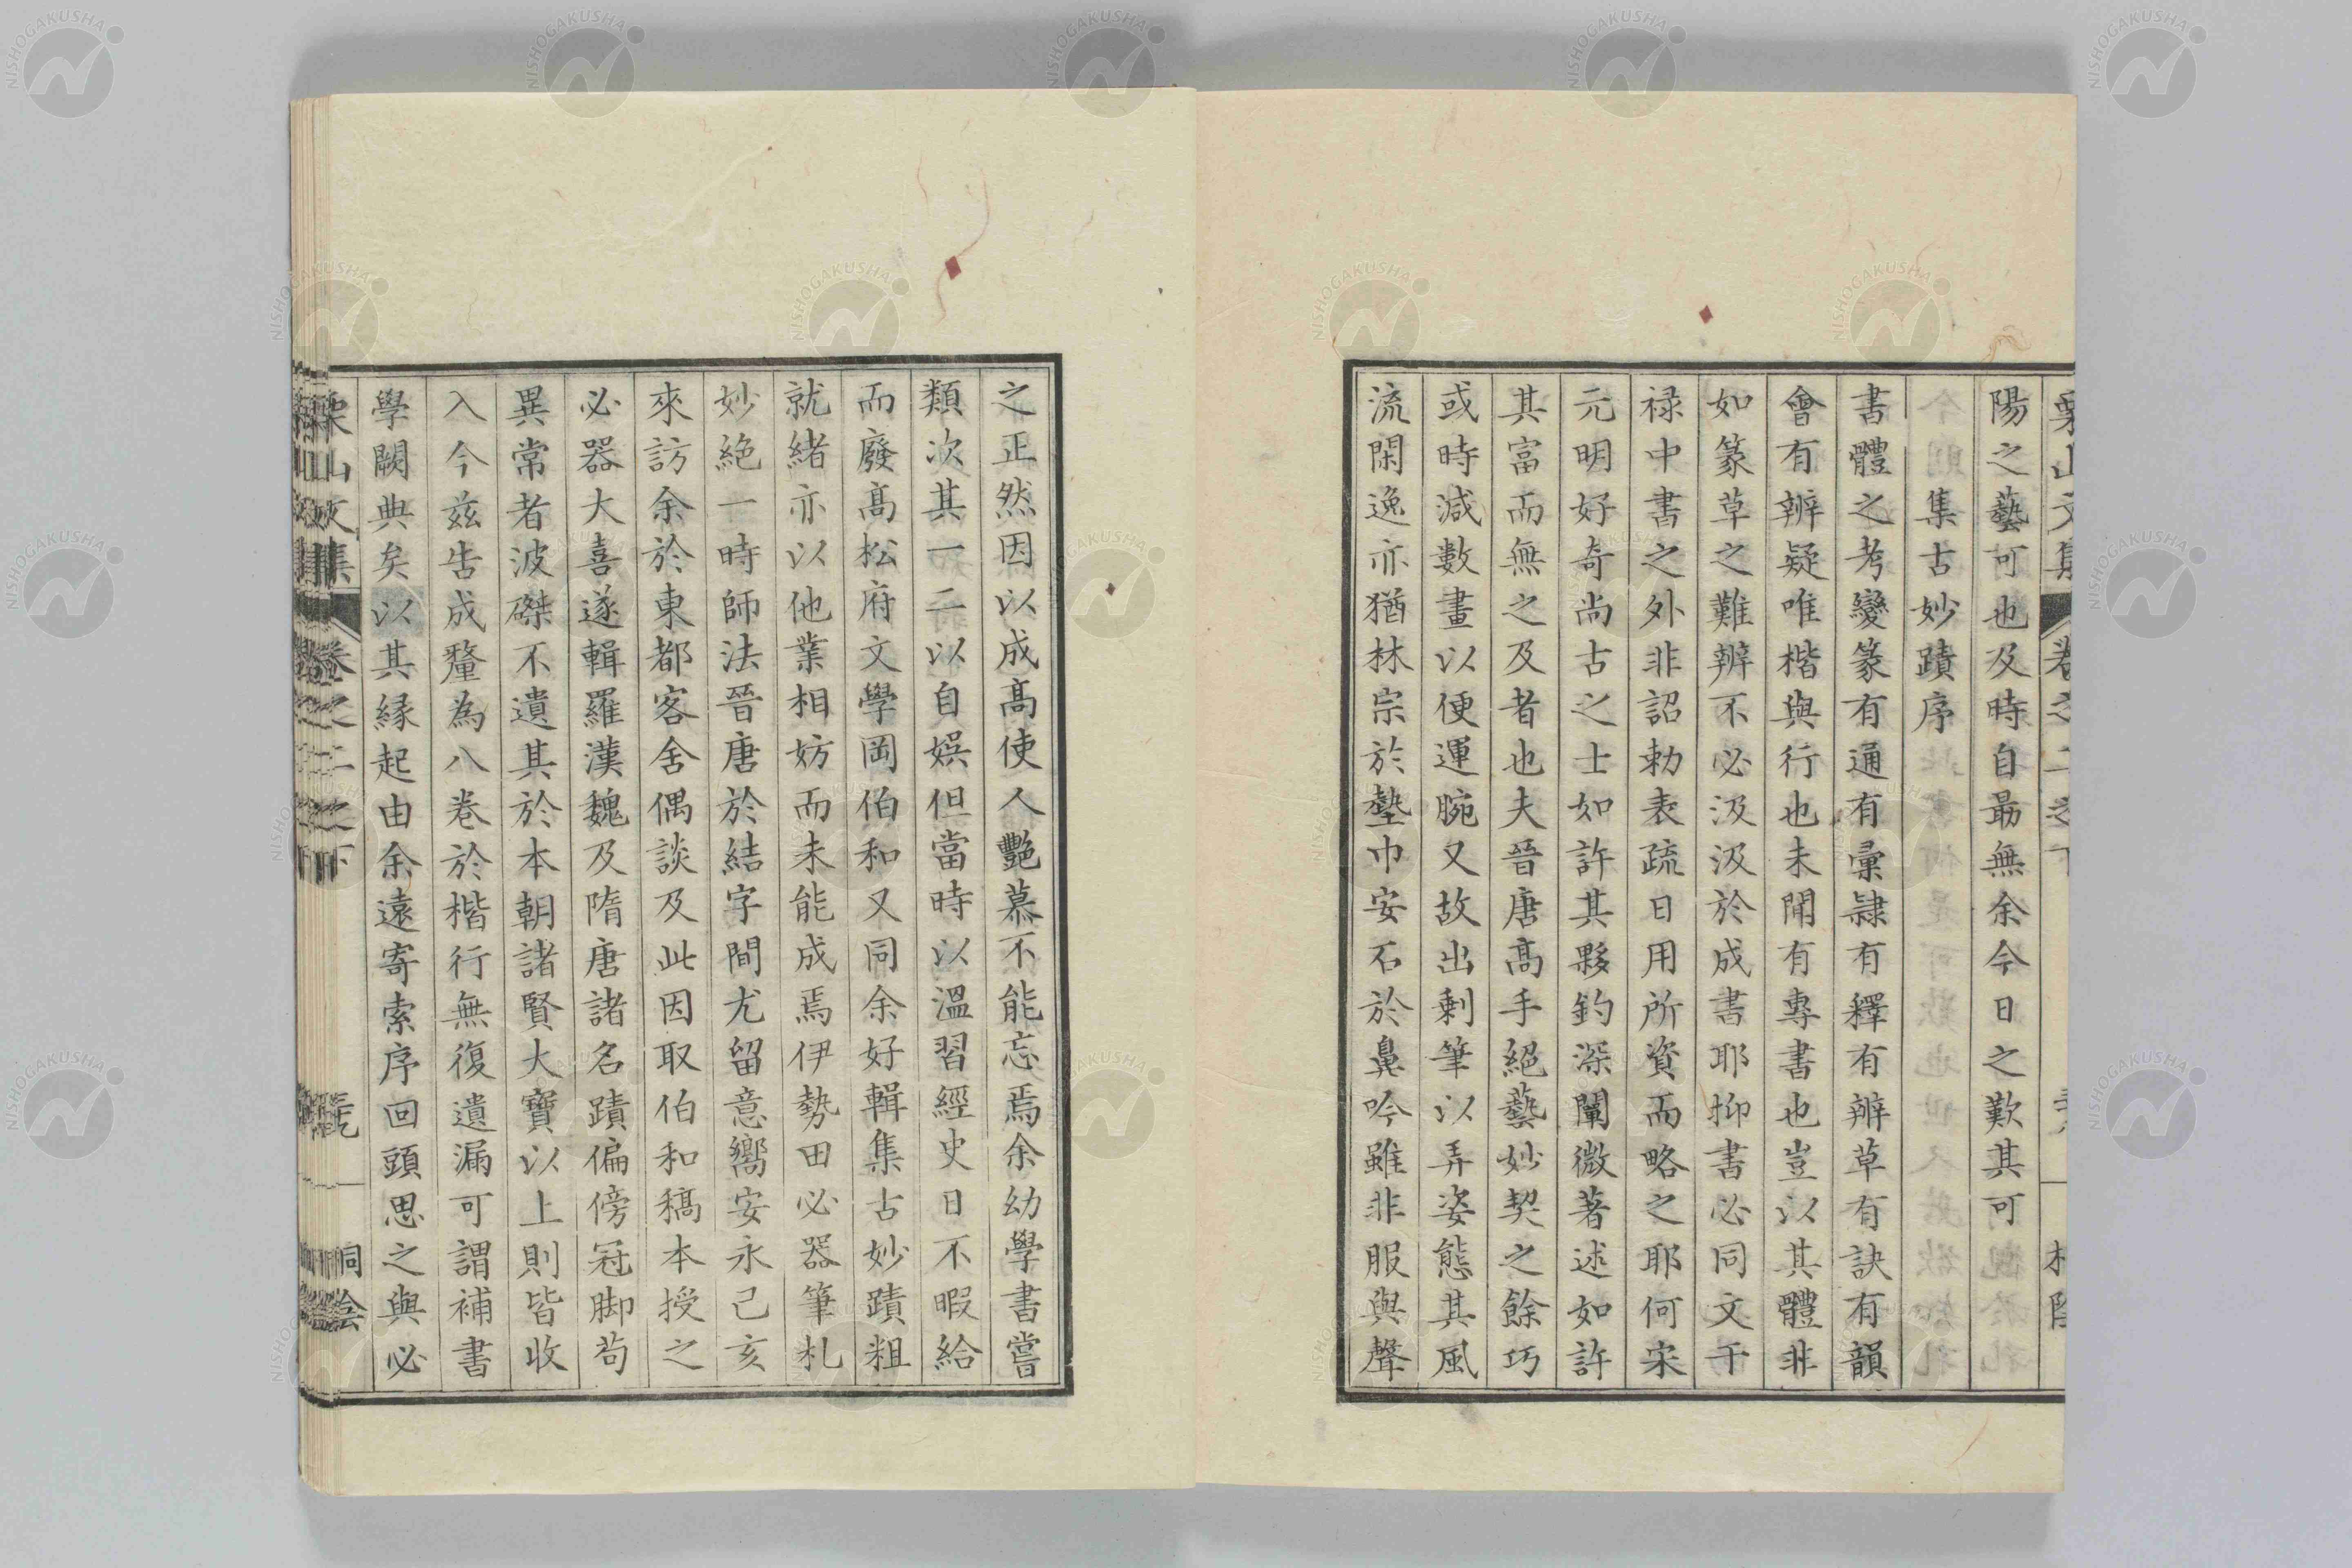 陽之藝可也及時自最無余今日之歎其可
集古妙蹟序
書體之考變篆有通有彙隷有釋有辨草有訣有韻
會有辨疑唯楷與行也未聞有專書也豈以其體非
如篆草之難辨不必汲汲於成書耶抑書必同文干
禄中書之外非詔勅表疏日用所資而略之耶何宋
元明好奇尚古之士如許其夥釣深闡微著述如許
其富而無之及者也夫晉唐髙手絕藝妙契之餘巧
或時減數畫以便運腕又故出剩筆以弄姿態其風
流閑逸亦猶林宗於墊巾安石於鼻吟雖非服與聲
之正然因以成髙使人艷慕不能忘焉余幼學書嘗
類次其一二以自娯但當時以溫習經史日不暇給
而廢髙松府文學岡伯和又同余好輯集古妙蹟粗
就緒亦以他業相妨而未能成焉伊勢田必器筆札
妙絕一時師法晉唐於結字間尤留意嚮安永己亥
來訪余於東都客舍偶談及此因取伯和稿本授之
必器大喜遂輯羅漢魏及隋唐諸名蹟偏傍冠脚苟
異常者波磔不遺其於本朝諸賢大寶以上則皆收
入今茲告成釐為八卷於楷行無復遺漏可謂補書
學闕典矣以其縁起由余遠寄索序回頭思之與必
栗山文集 卷之二之下
NISHOGAKUSHA